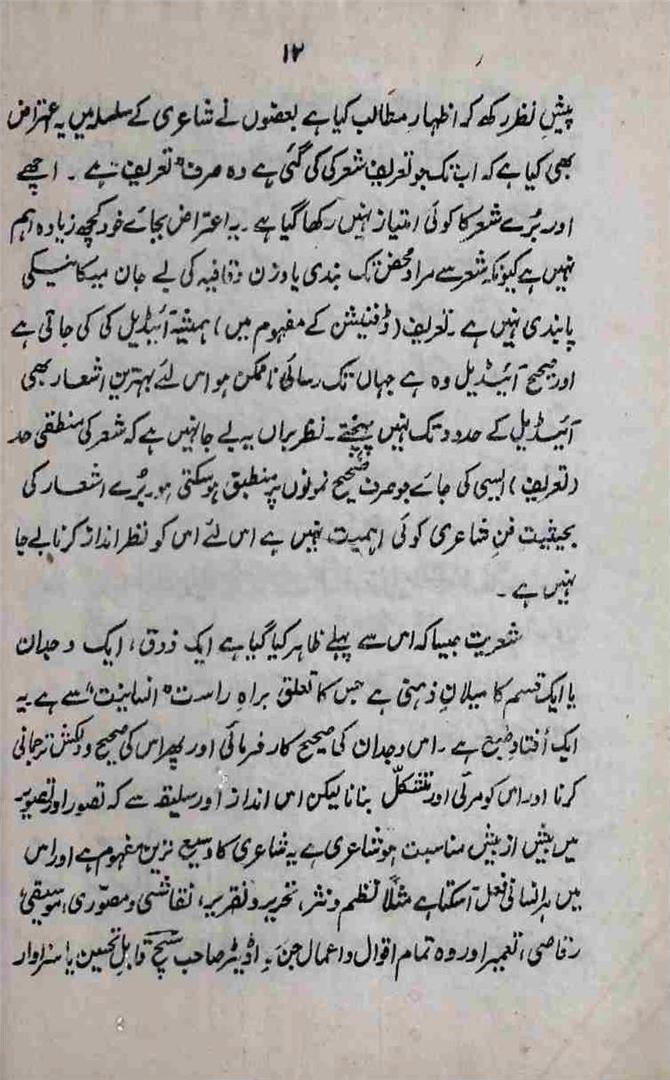 ۱۲
پیشِ نظر رکھ کہ اظہارِ مطالب کیا ہے بعضوں نے شاعری کے سلسلہ میں یہ اعتراض
بھی کیا ہے کہ اب تک جو تعریف شعر کی کی گئی ہے وہ صرف "تعریف" ہے ۔ اچھے
اور بُرے شعر کا کوئی امتیاز نہیں رکھا گیا ہے ۔ یہ اعتراض بجائے خود کچھ زیادہ اہم
نہیں ہے کیونکہ شعر سے مراد محض تک بندی یا وزن و قافیہ کی بے جان میکانیکی
پابندی نہیں ہے ۔ تعریف (ڈفنیشن کے مفہوم میں) ہمیشہ آئیڈیل کی کی جاتی ہے
اور صحیح آئیڈیل وہ ہے جہاں تک رسائی ناممکن ہو اس لئے بہترین اشعار بھی
آئیڈیل کے حدود تک نہیں پہنچتے ۔ نظر براں یہ بے جا نہیں ہے کہ شعر کی منطقی حد
(تعریف) ایسی کی جائے جو صرف صحیح نمونوں پر منطبق ہو سکتی ہو بُرے اشعار کی
بحیثیت فنِ شاعری کوئی اہمیت نہیں ہے اس لئے اس کو نظر انداز کرنا بے جا
نہیں ہے ۔
شعریت جیسا کہ اس سے پہلے ظاہر کیا گیا ہے ایک ذوق، ایک وجدان
یا ایک قسم کا میلانِ ذہنی ہے جس کا تعلق براہِ راست "انسانیت" سے ہے یہ
ایک اُفتادِ طبع ہے ۔ اس وجدان کی صحیح کارفرمائی اور پھر اس کی صحیح و دلکش ترجمانی
کرنا اور اس کو مرئی اور متشکل بنانا لیکن اس انداز اور سلیقہ سے کہ تصور اور تصویر
میں بیش از بیش مناسبت ہو شاعری ہے یہ شاعری کا وسیع ترین مفہوم ہے اور اس
میں ہر انسانی فعل آ سکتا ہے مثلاً نظم و نثر، تحریر و تقریر، نقاشی و مصوّری، موسیقی
رقاصی، تعمیر اور وہ تمام اقوال و اعمال جن پہ اڈیٹر صاحب سچ قابلِ تحسین یا سزاوار